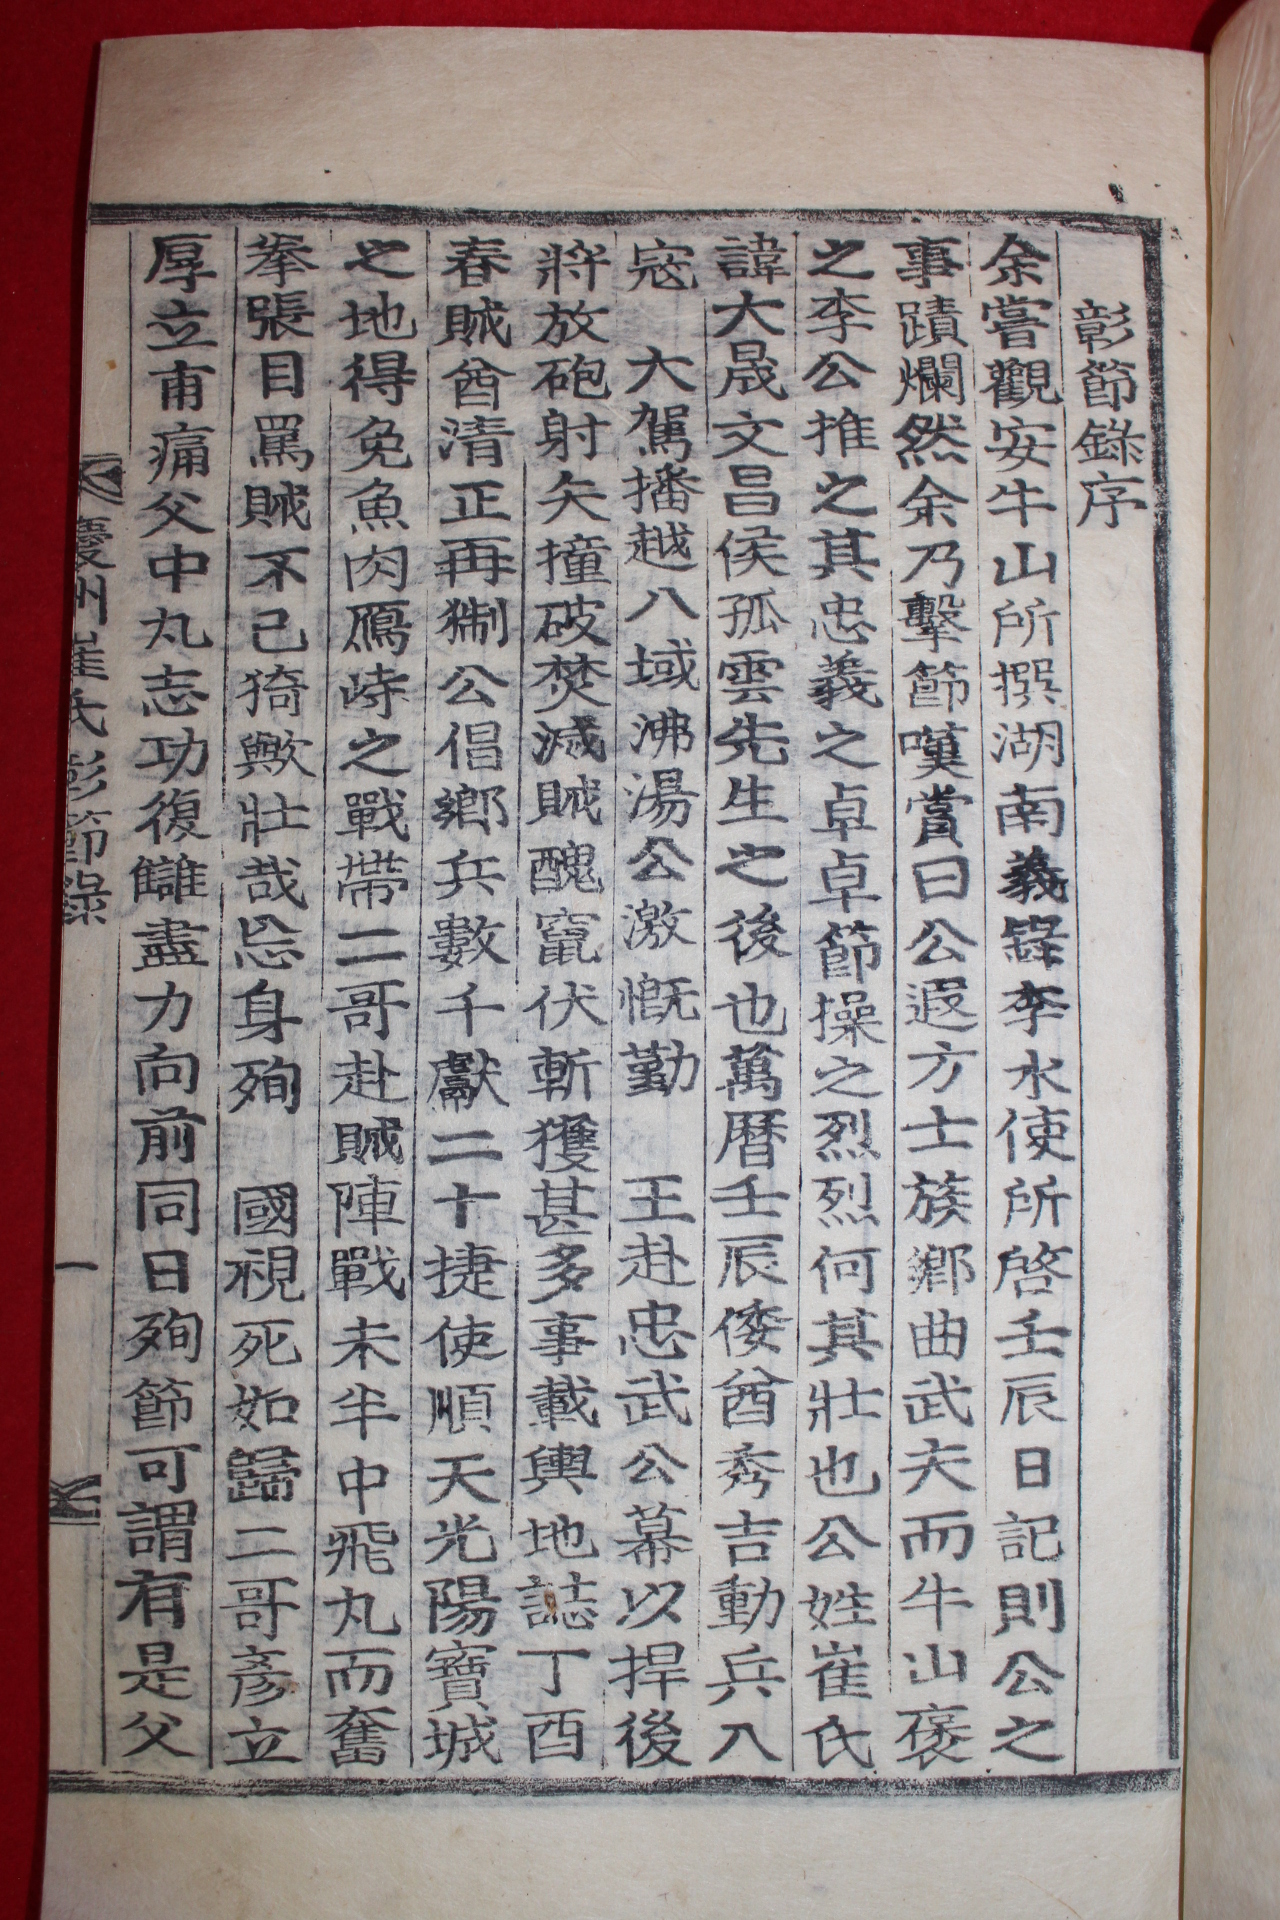 彰節錄序
余嘗觀安牛山所撰湖南義錄李水使所啓壬辰日記則公之
事蹟爛然余乃擊節嘆賞曰公遐方士族鄕曲武夫而牛山褒
之李公推之其忠義之卓卓節操之烈烈何其壯也公姓崔氏
諱大晟文昌侯孤雲先生之後也萬曆壬辰倭酋秀吉動兵入
寇 大駕播越八域沸湯公激慨勤 王赴忠武公幕以捍後
將放砲射矢撞破焚滅賊醜竄伏斬獲甚多事載輿地誌丁酉
春賊酋淸正再猘公倡鄕兵數千獻二十捷使順天光陽寶城
之地得免魚肉鴈峙之戰帶二哥赴賊陣戰未半中飛丸而奮
拳張目罵賊不已猗歟壯哉忘身殉 國視死如歸二哥彥立
厚立甫痛父中丸志功復讎盡力向前同日殉節可謂有是父
慶州崔氏彰節錄
一